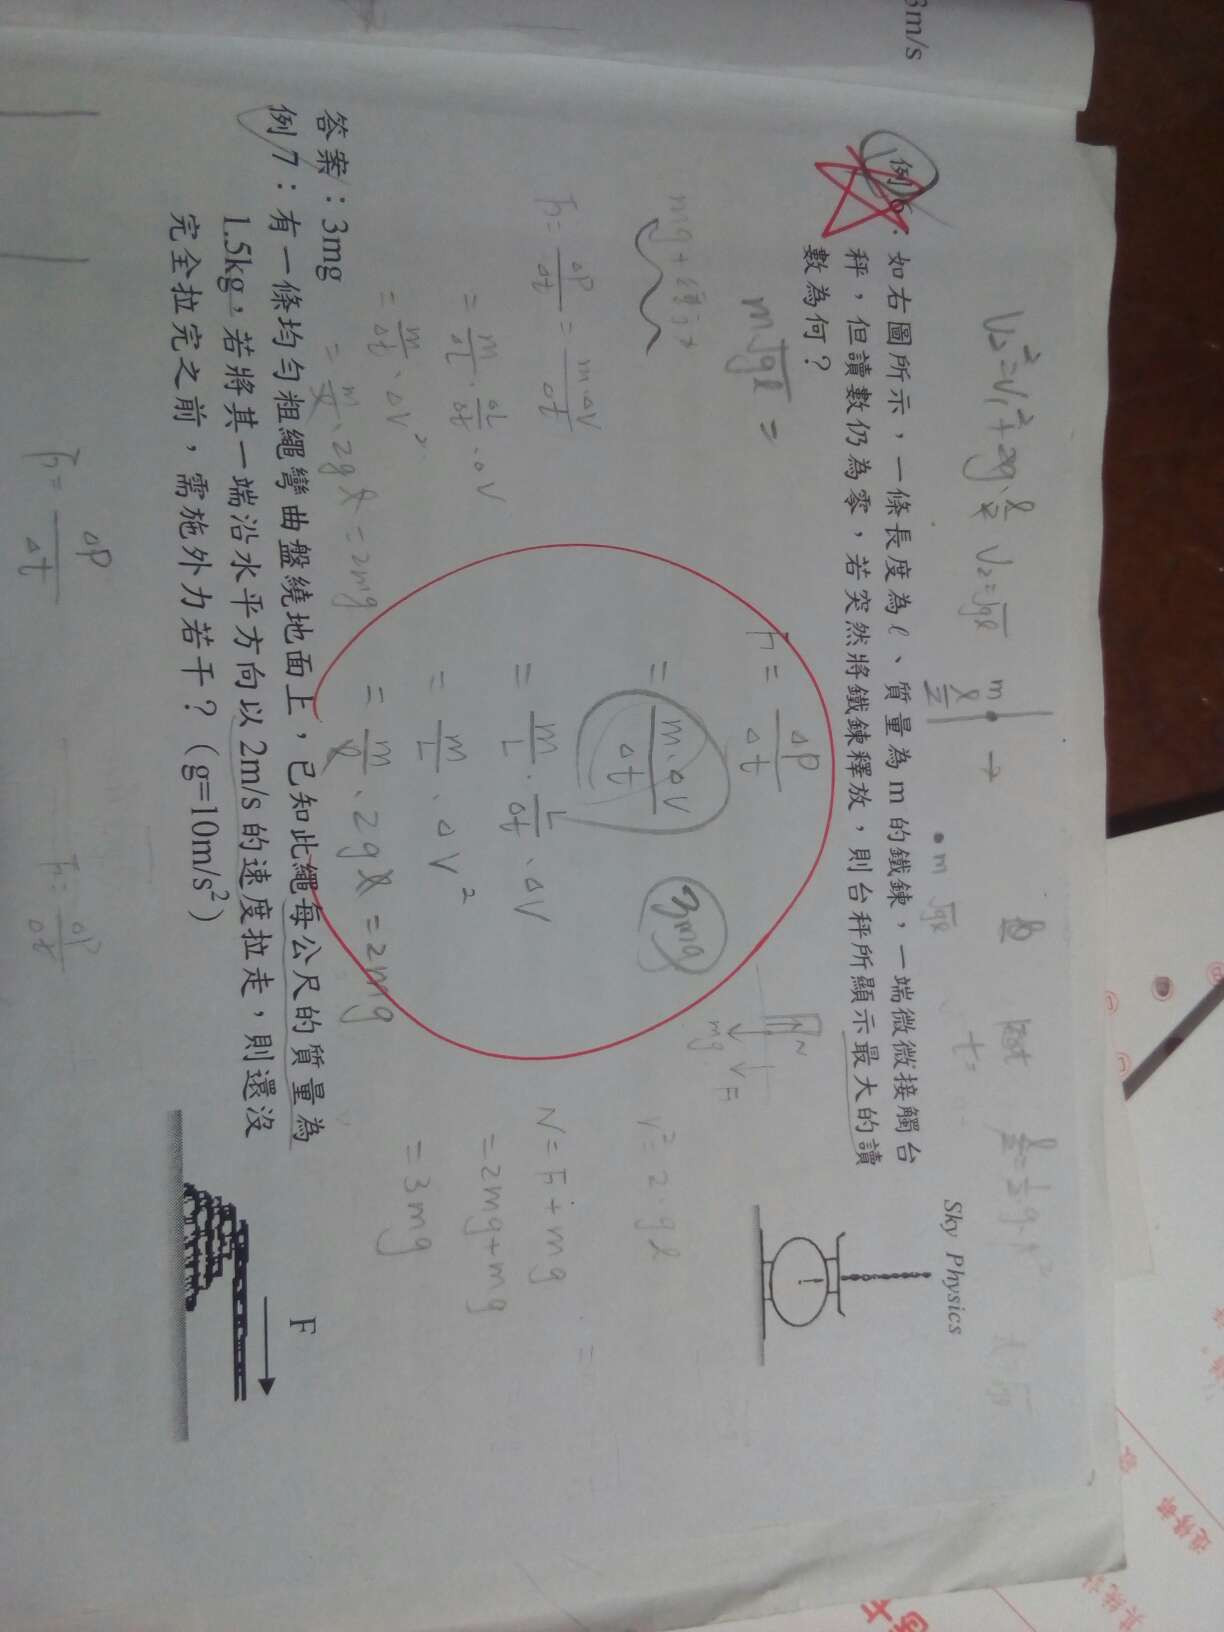 3m/s
Sky Physics
例6：如右圖所示，一條長度為ℓ、質量為m的鐵鍊，一端微微接觸台
秤，但讀數仍為零，若突然將鐵鍊釋放，則台秤所顯示最大的讀
數為何？
V₂²=V₁²+2g·ℓ/2 V₂=√gℓ
m√gℓ =
mg+
F=ΔP/Δt=m·ΔV/Δt
=m/Δt·ΔL/Δt·ΔV
=m/Δt·ΔV²
=m/ℓ·2gℓ=2mg
F=ΔP/Δt
=m·ΔV/Δt
=m/L·L/Δt·ΔV
=m/L·ΔV²
=m/ℓ·2gℓ=2mg
3mg
N
mg F
V²=2·gℓ
N=F+mg
=2mg+mg
=3mg
答案：3mg
例7：有一條均勻粗繩彎曲盤繞地面上，已知此繩每公尺的質量為
1.5kg，若將其一端沿水平方向以2m/s的速度拉走，則還沒
完全拉完之前，需施外力若干？(g=10m/s²)
F
F=ΔP/Δt
F=ΔP/Δt